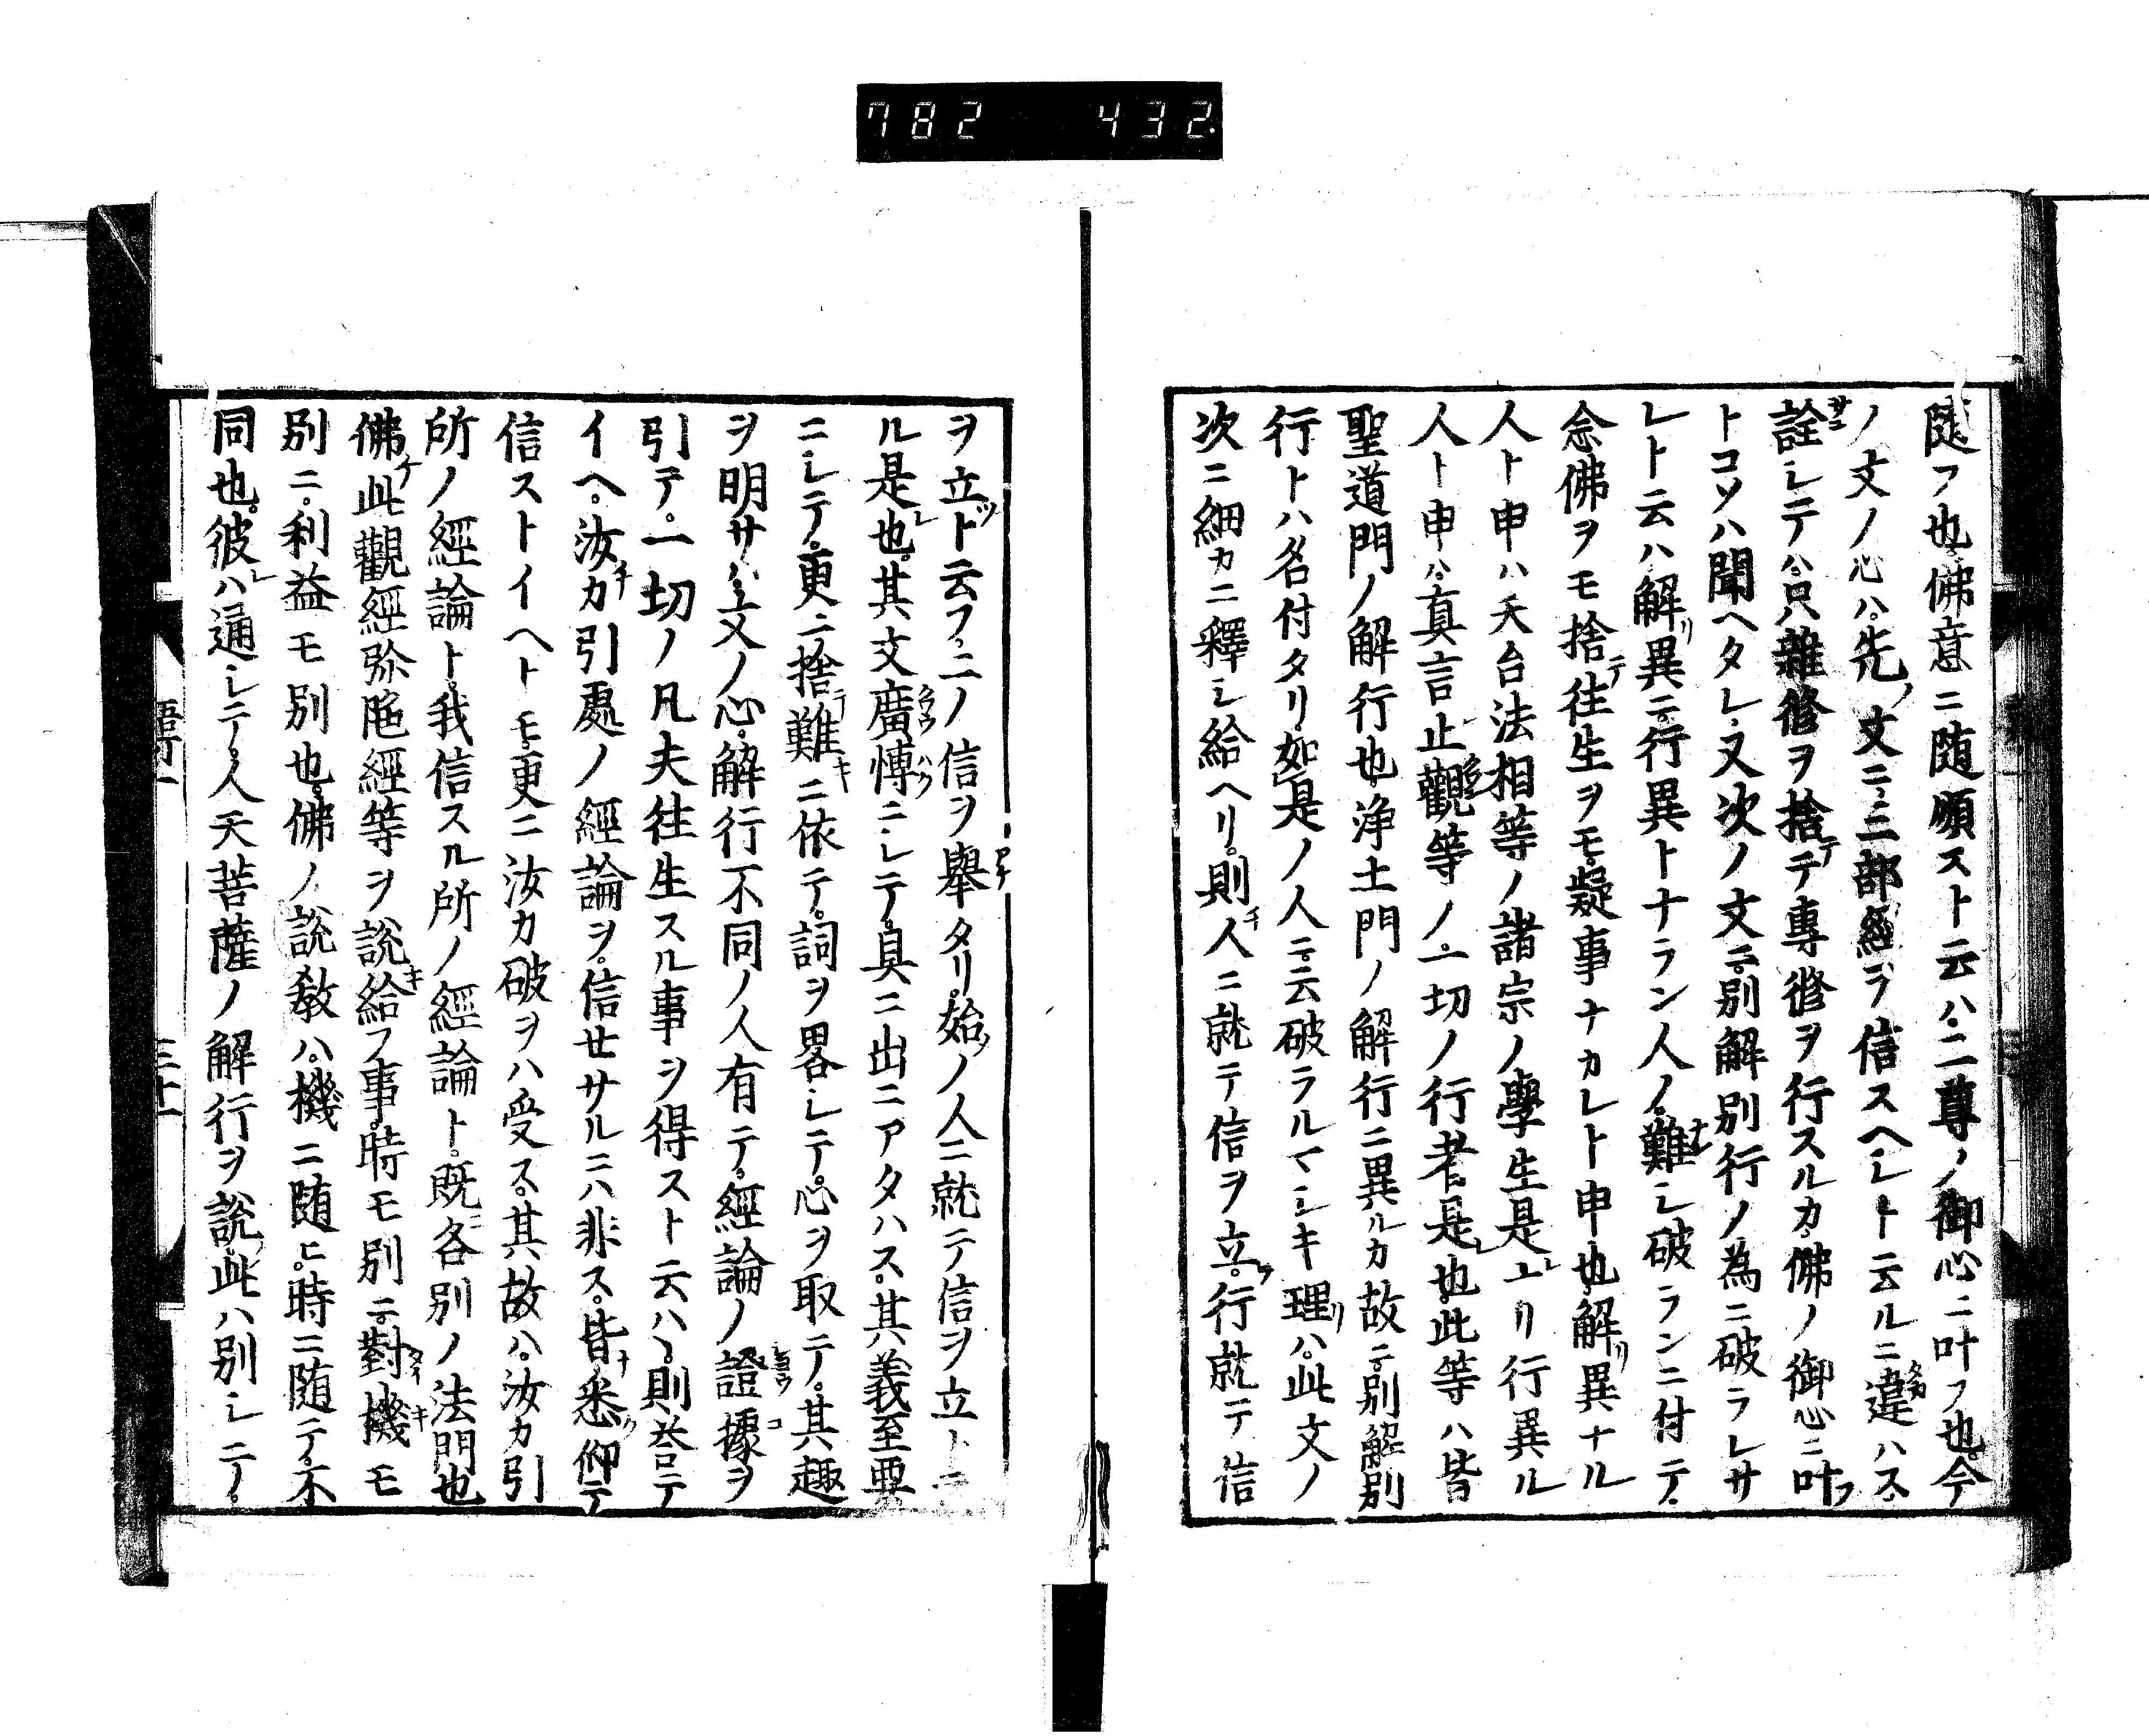 782 432
隨フ也佛意ニ随順スト云ハ二尊ノ御心ニ叶フ也今
ノ文ノ心ハ先文ニ三部經ヲ信スヘシト云ルニ違ハス
詮シテハ只雜修ヲ捨テ專修ヲ行スルカ佛ノ御心ニ叶
トコソハ聞ヘタレ又次ノ文ニ別解別行ノ為ニ破ラレサ
レト云ハ解異ニ行異トナラン人ノ難シ破ランニ付テ
念佛ヲモ捨往生ヲモ疑事ナカレト申也解異ナル
人ト申ハ天台法相等ノ諸宗ノ學生是也行異ル
人ト申ハ真言止觀等ノ一切ノ行者是也此等ハ皆
聖道門ノ解行也浄土門ノ解行ニ異ルカ故ニ別解別
行トハ名付タリ如是ノ人ニ云破ラルマシキ理ハ此文ノ
次ニ細カニ釋シ給ヘリ則人ニ就テ信ヲ立行就テ信
ヲ立ト云フ二ノ信ヲ擧タリ始ノ人ニ就テ信ヲ立ト
ル是也其文廣博ニシテ具ニ出ニアタハス其義至要
ニシテ更ニ捨難ニ依テ詞ヲ畧シテ心ヲ取テ其趣
ヲ明サハ文ノ心解行不同ノ人有テ經論ノ證據ヲ
引テ一切ノ凡夫往生スル事ヲ得スト云ハヽ則荅テ
イヘ汝カ引處ノ經論ヲ信セサルニハ非ス皆悉仰テ
信ストイヘトモ更ニ汝カ破ヲハ受ス其故ハ汝カ引
所ノ經論ト我信スル所ノ經論ト既各別ノ法門也
佛此觀經弥陁經等ヲ説給フ事時モ別ニ對機モ
別ニ利益モ別也佛ノ説教ハ機ニ随ヒ時ニ随テ不
同也彼ハ通シテ人天菩薩ノ解行ヲ説此ハ別シテ